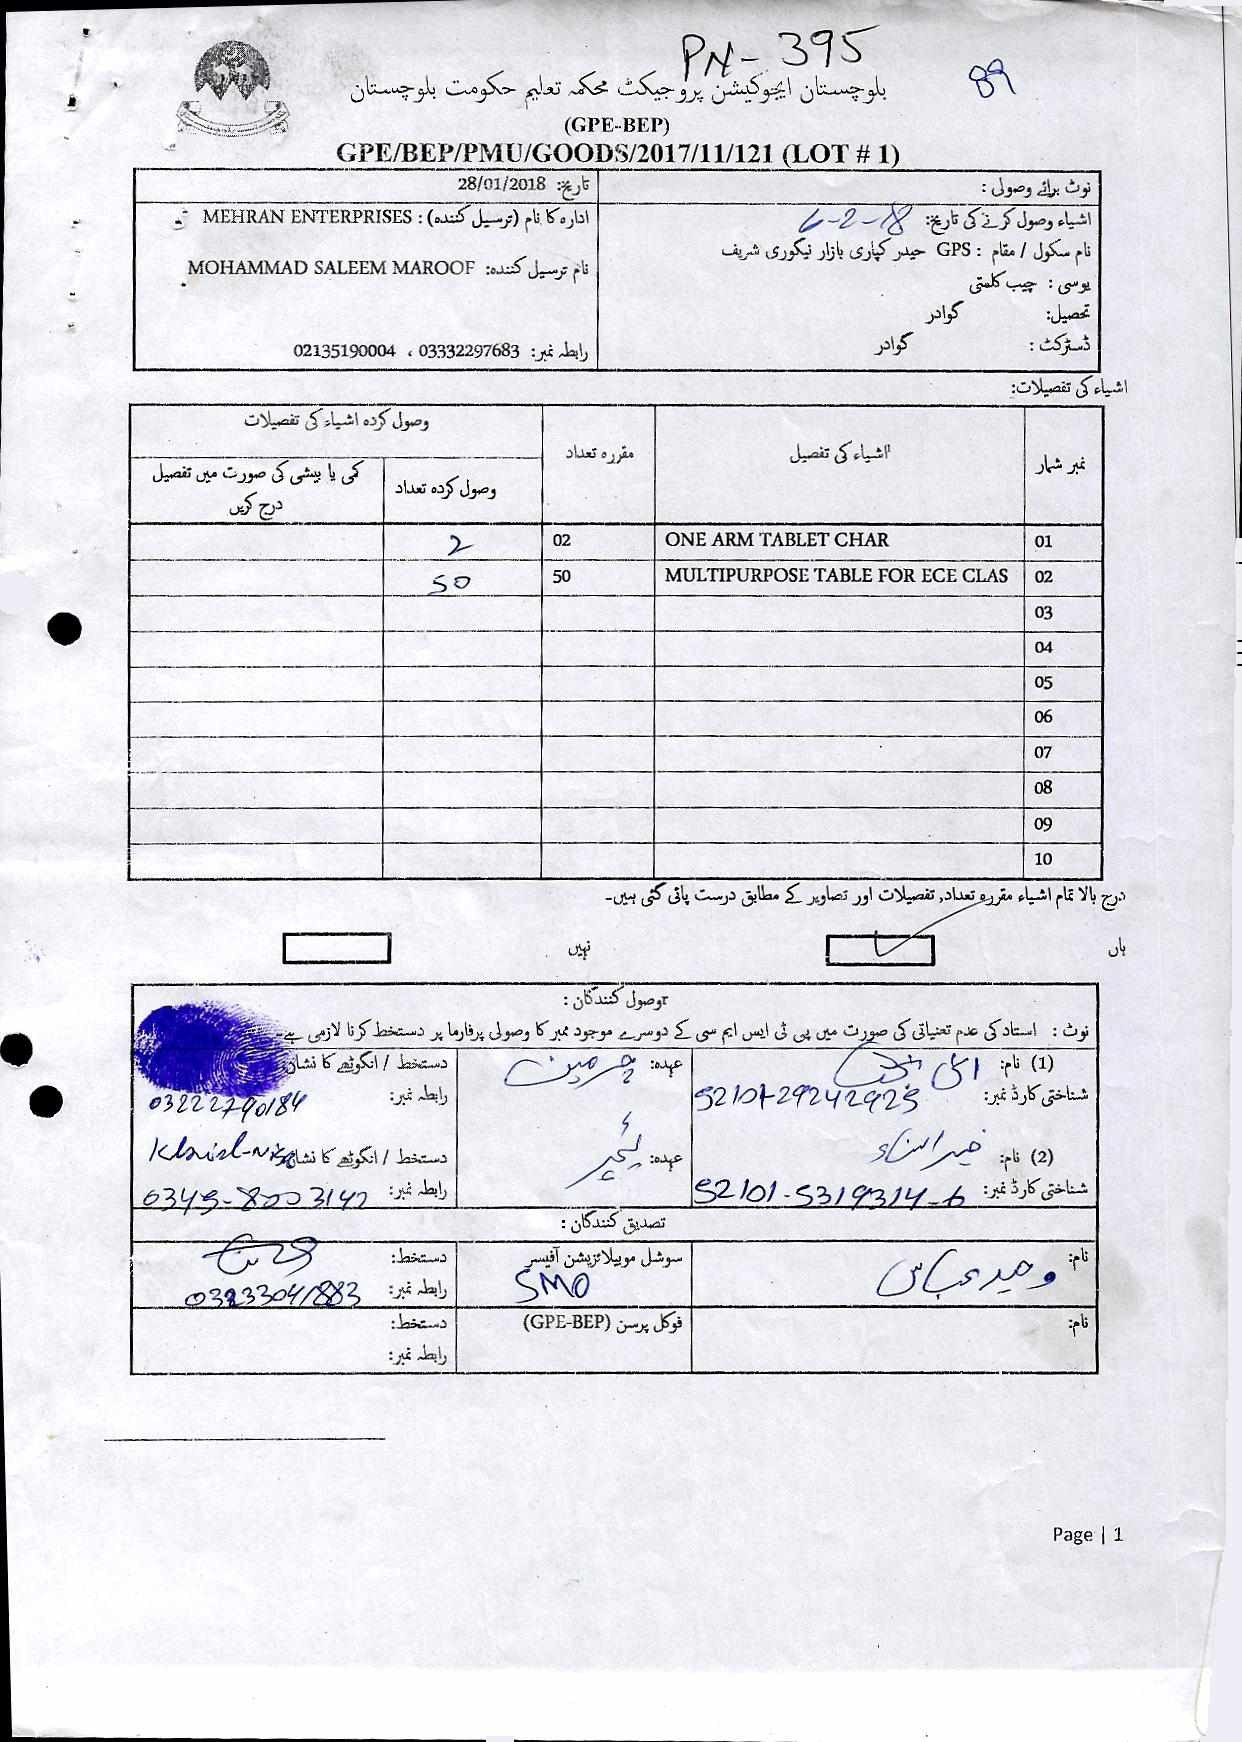 PN-395
89
بلوچستان ایجوکیشن پروجیکٹ محکمہ تعلیم حکومت بلوچستان
(GPE-BEP)
GPE/BEP/PMU/GOODS/2017/11/121 (LOT # 1)
نوٹ برائے وصولی :
تاریخ: 28/01/2018
اشیاء وصول کرنے کی تاریخ: 6-2-18
ادارہ کا نام (ترسیل کنندہ) : MEHRAN ENTERPRISES
نام سکول / مقام : GPS حیدر کپاری بازار نیگوری شریف
نام ترسیل کنندہ: MOHAMMAD SALEEM MAROOF
یو سی : چیب کلمتی
تحصیل: گوادر
ڈسٹرکٹ : گوادر
رابطہ نمبر: 03332297683 ، 02135190004
اشیاء کی تفصیلات:
نمبر شمار اشیاء کی تفصیل مقررہ تعداد وصول کردہ اشیاء کی تفصیلات
وصول کردہ تعداد کمی یا بیشی کی صورت میں تفصیل درج کریں
01 ONE ARM TABLET CHAR 02 2
02 MULTIPURPOSE TABLE FOR ECE CLAS 50 50
03
04
05
06
07
08
09
10
درج بالا تمام اشیاء مقررہ تعداد, تفصیلات اور تصاویر کے مطابق درست پائی گئی ہیں۔
ہاں نہیں
وصول کنندگان :
نوٹ : استاد کی عدم تعیناتی کی صورت میں پی ٹی ایس ایم سی کے دوسرے موجود ممبر کا وصولی پرفارما پر دستخط کرنا لازمی ہے
(1) نام: عہدہ: چرمین دستخط / انگوٹھے کا نشان
شناختی کارڈ نمبر: 52101-29242925 رابطہ نمبر: 03222790184
(2) نام: خیرالنساء عہدہ: ٹیچر دستخط / انگوٹھے کا نشان
شناختی کارڈ نمبر: 52101-5319314-6 رابطہ نمبر: 0345-8003142
تصدیق کنندگان :
نام: وحید عباس سوشل موبیلائزیشن آفیسر SMO دستخط:
رابطہ نمبر: 03233041883
نام: فوکل پرسن (GPE-BEP) دستخط:
رابطہ نمبر:
Page | 1